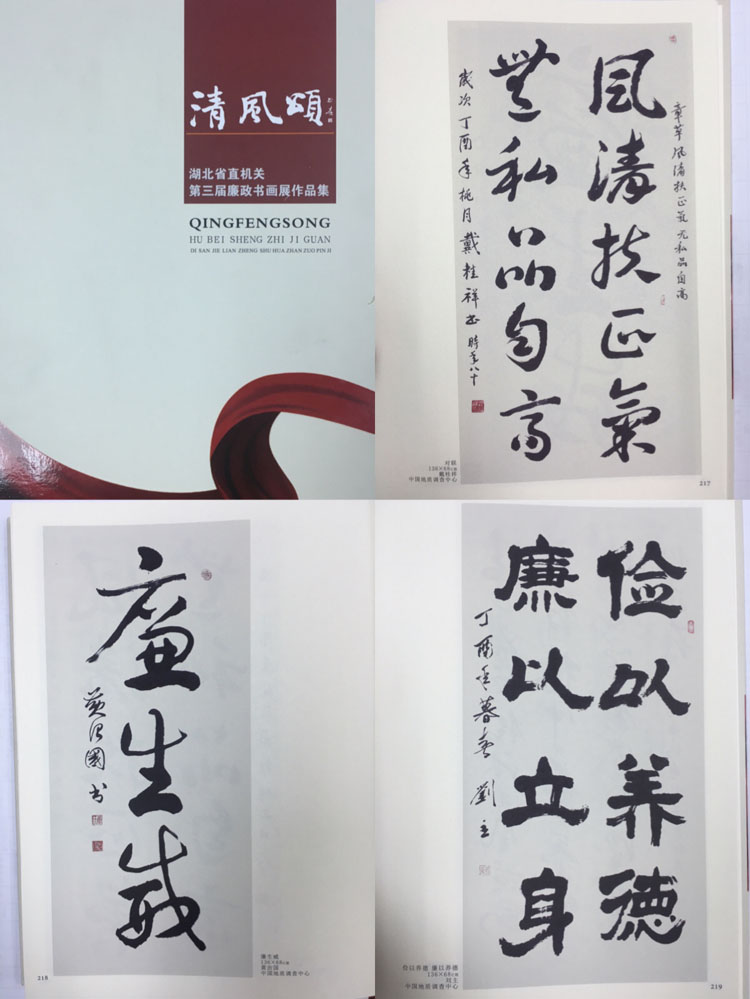 清風頌
湖北省直机关
第三届廉政书画展作品集
QINGFENGSONG
HU BEI SHENG ZHI JI GUAN
DI SAN JIE LIAN ZHENG SHU HUA ZHAN ZUO PIN JI
章草 风清扶正气 无私品自高
风清扶正氣
無私品自高
歲次丁酉年桃月戴桂祥书時年八十
对联
136×68cm
戴桂祥
中国地质调查中心
217
廉生威
黄治國书
廉生威
136×68cm
黄治国
中国地质调查中心
218
俭以养德
廉以立身
丁酉年暮春 劉主
俭以养德 廉以养德
136×68cm
刘主
中国地质调查中心
219